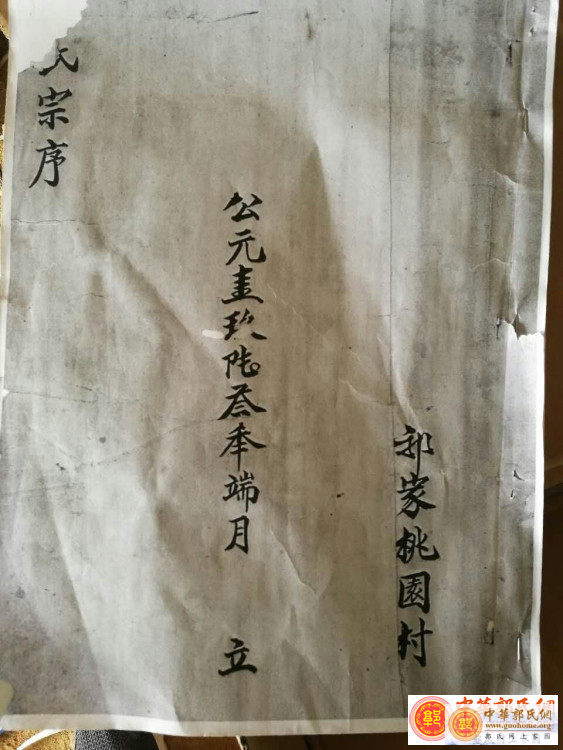 郭家桃園村
公元壹玖陆叁年端月 立
氏宗序
中華郭氏網
中華郭氏網
www.guohome.org
郭氏网上家园